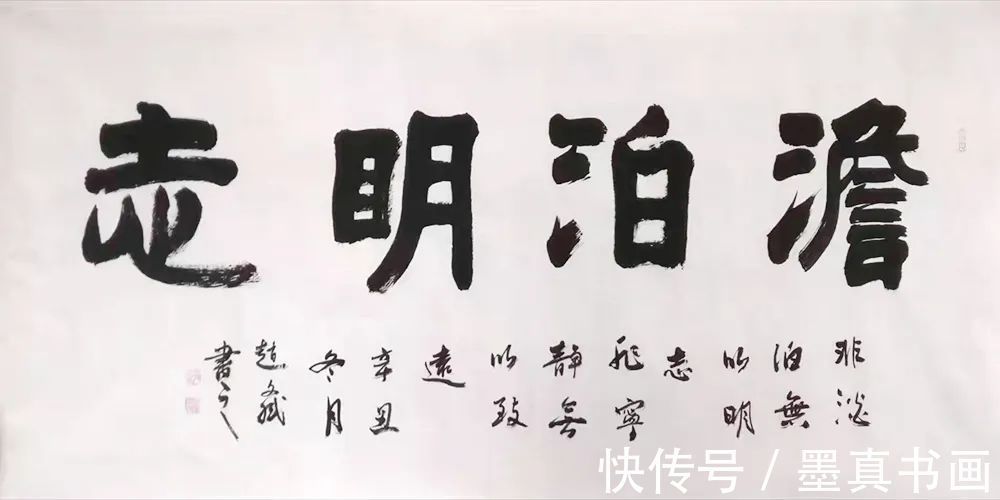 澹泊明志
非淡
泊無
以明
志
非寧
靜無
以致
遠
辛丑
冬月
趙
書之
快传号／墨真书画